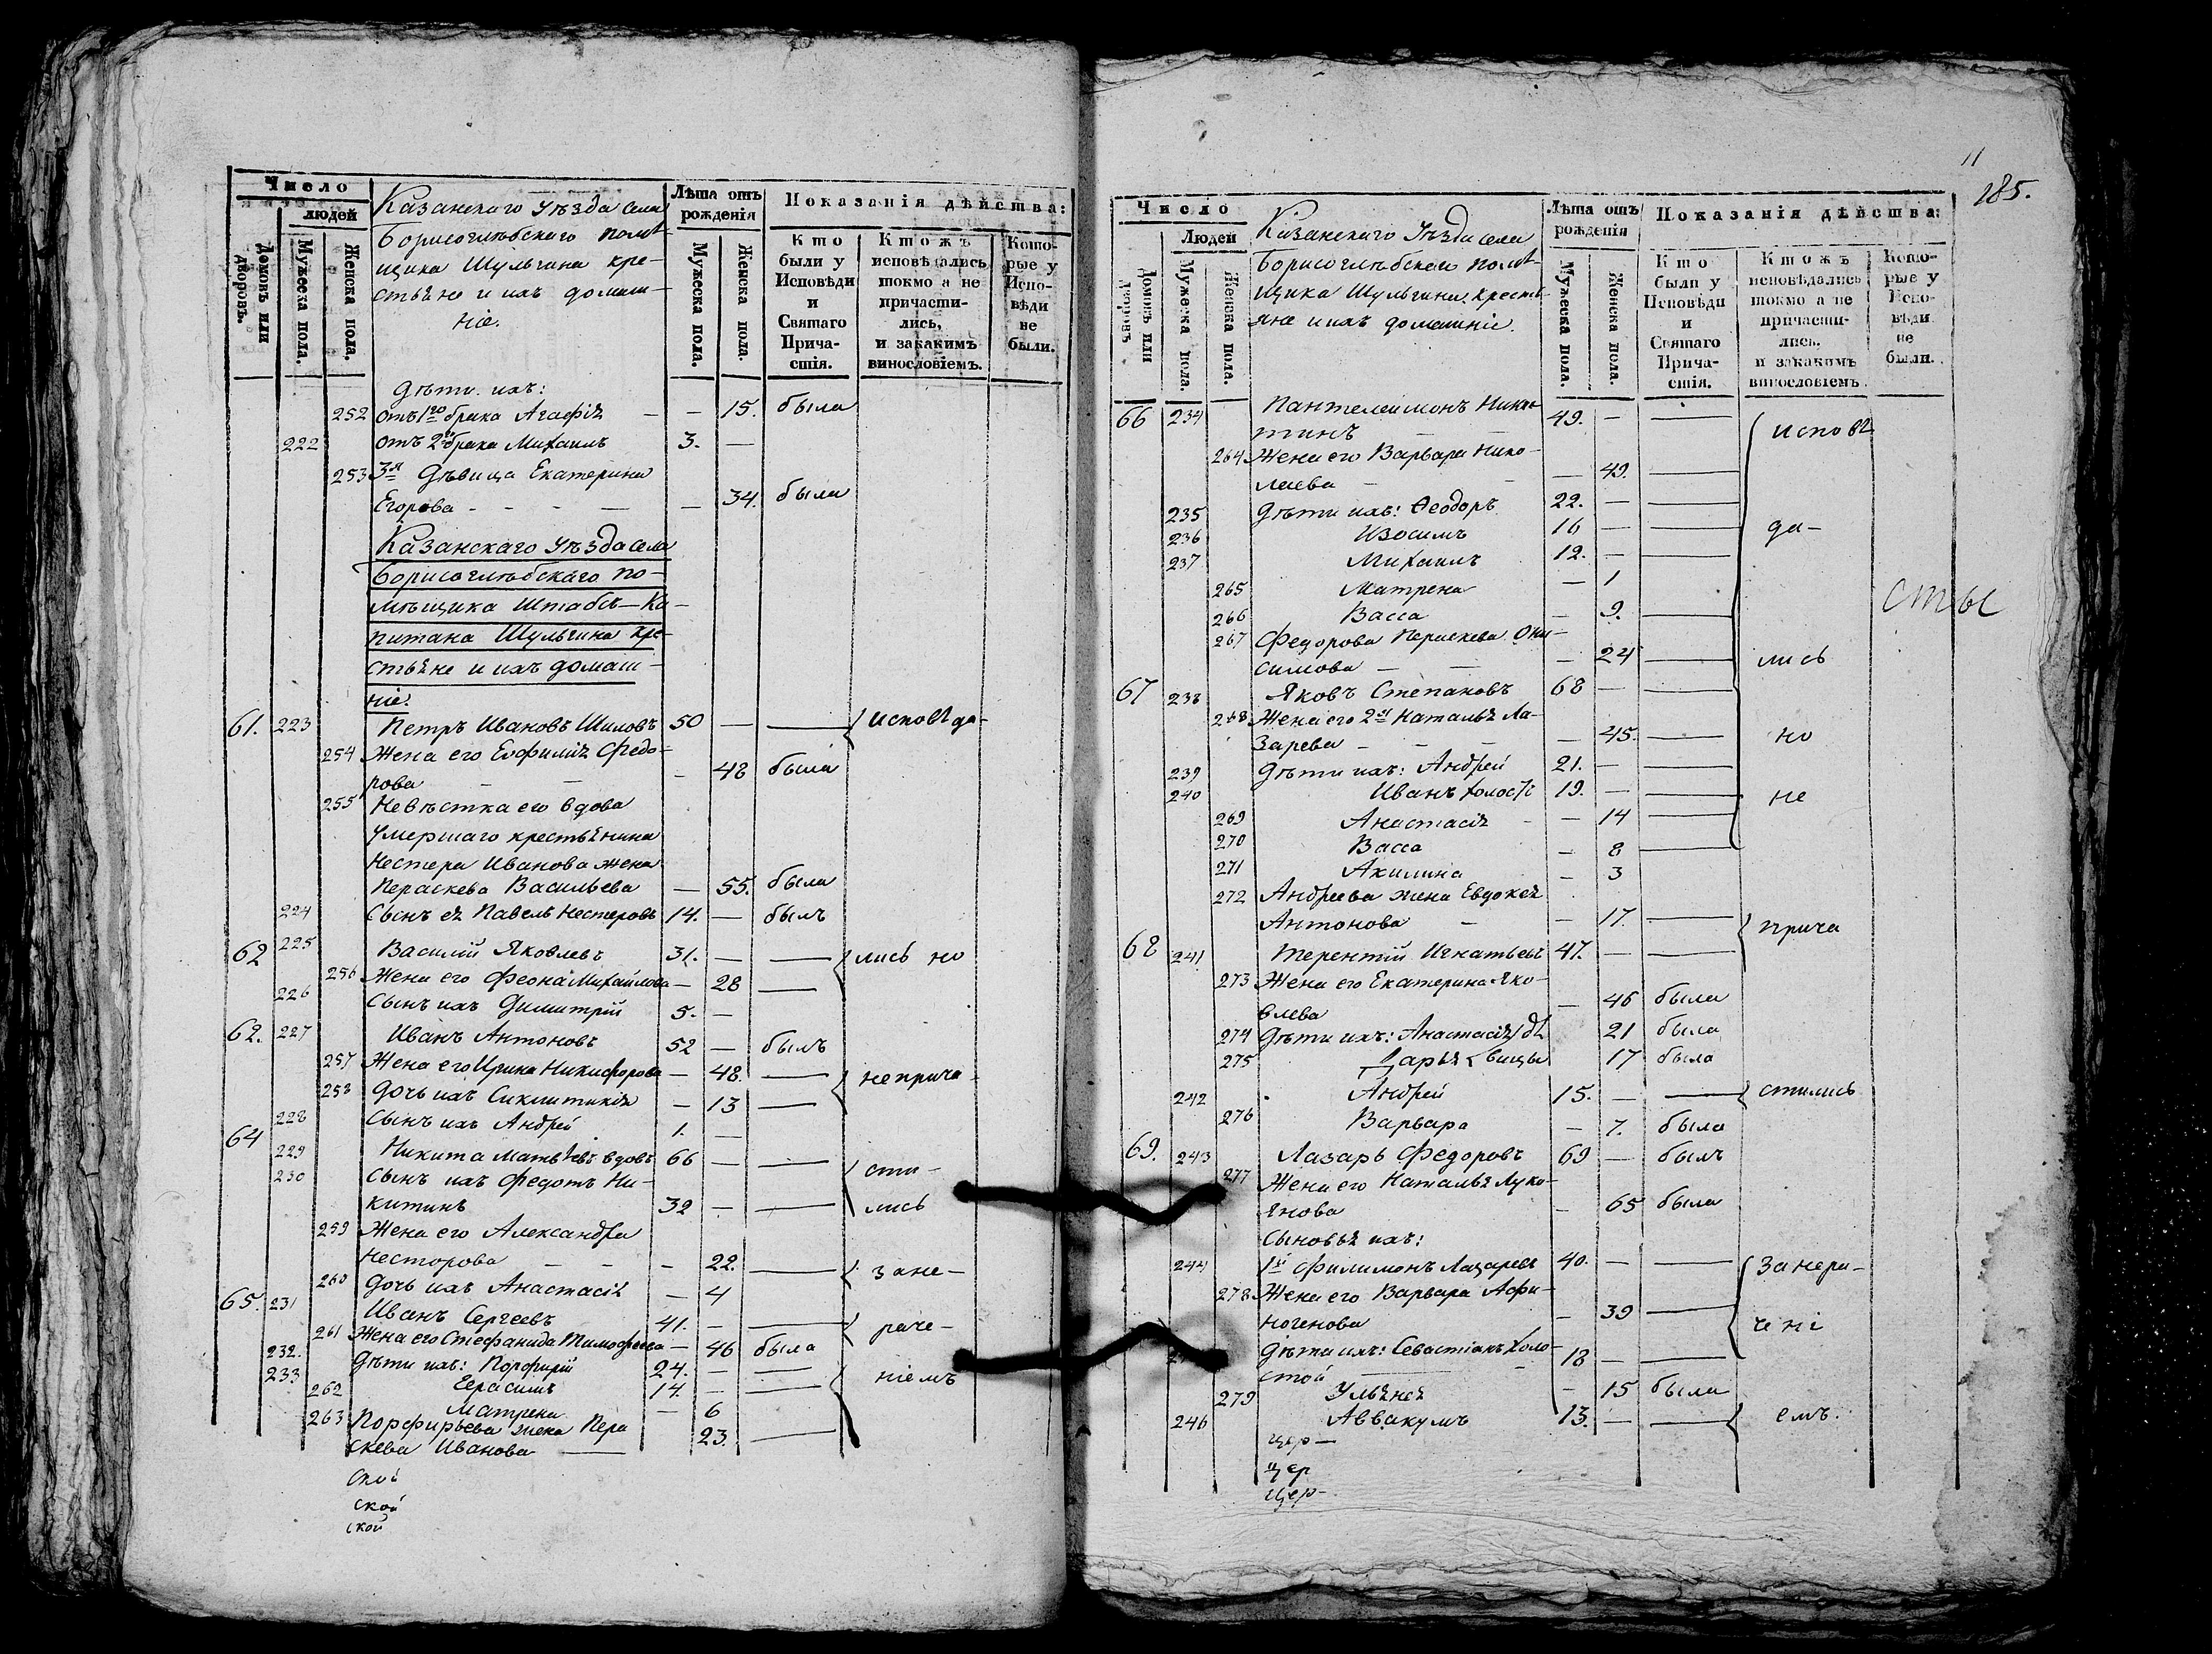 Число
людей
Домовъ или дворовъ.
Мужеска пола.
Женска пола.
Казанскаго Уѣзда села
Борисоглѣбскаго помѣ-
щика Шульгина кре-
стьяне и ихъ домаш-
ніе.
Лѣта отъ рожденія
Мужеска пола.
Женска пола.
Показанія дѣйства:
Кто были у Исповѣди и Святаго Причастія.
Ктожъ исповѣдались токмо а не причастились, и закакимъ винословіемъ.
Которые у Исповѣди не были.
Дѣти ихъ:
252 отъ 1го брака Агафія — — 15. была
222 отъ 2го брака Михаилъ 3. —
253 3я Дѣвица Екатерина
Егорова - - - — — 34. была
Казанскаго Уѣзда села
Борисоглѣбскаго по-
мѣщика Штабсъ-Ка-
питана Шульгина кре-
стьяне и ихъ домаш-
ніе.
61. 223 Петръ Ивановъ Шиловъ 50 — — исповѣда-
254 Жена его Евфимія Федо-
рова — — - 48 была
255 Невѣстка его вдова
Умершаго крестьянина
Нестера Иванова жена
Параскева Васильева — 55. была
224 Сынъ ея Павелъ Нестеровъ 14. — былъ
62 225 Василій Яковлевъ 31. — — лись но
256 Жена его Феона Михайлова — 28 —
226 Сынъ ихъ Димитрій 5. —
62. 227 Иванъ Антоновъ 52 — былъ
257 Жена его Ирина Никифорова — 48. — не прича-
258 Дочь ихъ — 13 —
228 Сынъ ихъ Андрей 1. —
64 229 Никита Матвѣевъ вдовъ 66 — — сти-
230 Сынъ ихъ Федотъ Ни-
китинъ 32 — — лись
259 Жена его Александра
Несторова — - - - 22. — зане-
260 Дочь ихъ Анастасія — 4
65. 231 Иванъ Сергеевъ 41. — — раче-
261 Жена его Стефанида Тимофеева — 46 была
232. Дѣти ихъ: Порфирій 24. — — ніемъ
233 Герасимъ 14. — —
262 Матрена — 6
263 Порфирьева жена Пара
скева Иванова — 23. —
ской
ской
ской
11
185.
Число
Людей
Домовъ или дворовъ
Мужеска пола.
Женска пола.
Казанскаго Уѣзда села
Борисоглѣбскаго помѣ-
щика Шульгина кресть-
яне и ихъ домашніе.
Лѣта отъ рожденія
Мужеска пола.
Женска пола.
Показанія дѣйства:
Кто были у Исповѣди и Святаго Причастія.
Ктожъ исповѣдались токмо а не причастились, и закакимъ винословіемъ.
Которые у Исповѣди не были.
66 234 Пантелеимонъ Ники-
тинъ — — 49. — — исповѣ
264 Жена его Варвара Нико-
лаева — - — 49. —
235 Дѣти ихъ: Ѳеодоръ 22. — —
236 Изосимъ 16 — — да-
237 Михаилъ 12. — —
265 Матрена — 1
266 Васса — 9. —
сты
267 Федорова Параскева Они-
симова — — — 24 — лись
67 238 Яковъ Степановъ 68 — —
268 Жена его 2я Наталья Ла-
зарева - - — — 45. — но
239 Дѣти ихъ: Андрей 21. — —
240 Иванъ холостъ 19. — — не
269 Анастасія - — 14 —
270 Васса — 8 —
271 Акилина — 3
272 Андреева жена Евдокея
Антонова — — 17. — прича
68 241 Терентій Игнатьевъ 47. — —
273 Жена его Екатерина Яко-
влева — 46 была
274 Дѣти ихъ: Анастасія дѣ 21 была
275 Дарья вицы 17 была
242 Андрей 15. — — стились
276 Варвара — 7. была
69. 243 Лазарь Федоровъ 69 — былъ
277 Жена его Наталья Лукь-
янова — 65 была
Сыновья ихъ:
244 1й Филимонъ Лазаревъ 40. — — занера-
278 Жена его Варвара Афи-
ногенова — 39 — чені
Дѣти ихъ: Севастіанъ холо-
стой 18 — —
279 Ульянея — 15 была
246 Аввакумъ 13. — — емъ.
цер-
цер
цер-